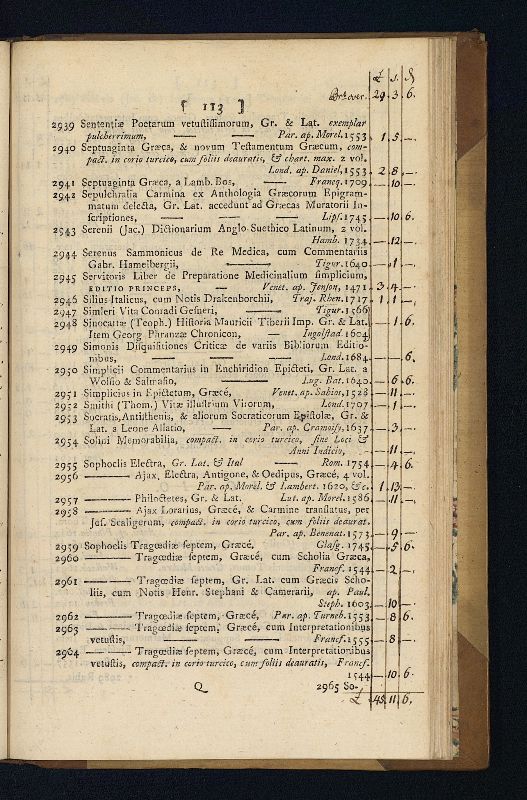 £ s. d
Brt over. 29 . 3 . 6.
[ 113 ]
2939 Sententiæ Poetarum vetustissimorum, Gr. & Lat. exemplar
pulcherrimum, —— —— Par. ap. Morel. 1553 — 1 . 5 . —
2940 Septuaginta Græca, & novum Testamentum Græcum, com-
pact. in corio turcico, cum foliis deauratis, & chart. max. 2 vol.
Lond. ap. Daniel, 1553 — 2 . 8 . —
2941 Septuaginta Græca, a Lamb. Bos, —— Francq. 1709 — 10 —
2942 Sepulchralia Carmina ex Anthologia Græcorum Epigram-
matum delecta, Gr. Lat. accedunt ad Græcas Muratorii In-
scriptiones, —— —— —— Lips. 1745 — 10 . 6
2943 Serenii (Jac.) Dictionarium Anglo-Suethico Latinum, 2 vol.
Hamb. 1734 — 12 —
2944 Serenus Sammonicus de Re Medica, cum Commentariis
Gabr. Hamelbergii, —— Tigur. 1640 — 1 —
2945 Servitoris Liber de Preparatione Medicinalium simplicium,
EDITIO PRINCEPS, — Venet. ap. Jenson, 1471 3 . 4 . —
2946 Silius Italicus, cum Notis Drakenborchii, Traj. Rhen. 1717 . 1 . 1 . —
2947 Simleri Vita Conradi Gesneri, —— Tigur. 1566
2948 Sinocattæ (Teoph.) Historia Mauricii Tiberii Imp. Gr. & Lat. — 1 . 6
Item Georg Phranzæ Chronicon, — Ingolstad. 1604
2949 Simonis Disquisitiones Criticæ de variis Bibliorum Editio-
nibus, —— —— —— Lond. 1684 — — 6.
2950 Simplicii Commentarius in Enchiridion Epicteti, Gr. Lat. a
Wolfio & Salmasio, —— Lug. Bat. 1640 — 6 . 6
2951 Simplicius in Epictetum, Græcé, Venet. ap. Sabios, 1528 — 11 —
2952 Smithi (Thom.) Vitæ illustrium Virorum, Lond. 1707 — 1 —
2953 Socratis, Antisthenis, & aliorum Socraticorum Epistolæ, Gr. &
Lat. a Leone Allatio, —— Par. ap. Cramoisy, 1637 — 3 —
2954 Solini Memorabilia, compact. in corio turcico, sine Loci &
Anni Indicio, — 11 —
2955 Sophoclis Electra, Gr. Lat. & Ital —— Rom. 1754 — 4 . 6
2956 ——— Ajax, Electra, Antigone, & Oedipus, Græcé, 4 vol.
Par. ap. Morel. & Lambert. 1620, &c. 1 . 13 —
2957 ——— Philoctetes, Gr. & Lat. Lut. ap. Morel. 1586 — 11 —
2958 ——— Ajax Lorarius, Græcé, & Carmine translatus, per
Jos. Scaligerum, compact. in corio turcico, cum foliis deaurat.
Par. ap. Benenat. 1573 — 9 —
2959 Sophoclis Tragœdiæ septem, Græcé, Glasg. 1745 — 5 . 6
2960 ——— Tragœdiæ septem, Græcé, cum Scholia Græca,
Francf. 1544 — 2 —
2961 ——— Tragœdiæ septem, Gr. Lat. cum Græcis Scho-
liis, cum Notis Henr. Stephani & Camerarii, ap. Paul.
Steph. 1603 — 10 —
2962 ——— Tragœdiæ septem, Græcé, Par. ap. Turneb. 1553 — 8 . 6
2963 ——— Tragœdiæ septem, Græcé, cum Interpretationibus
vetustis, —— —— Francf. 1555 — 8 —
2964 ——— Tragœdiæ septem, Græcé, cum Interpretationibus
vetustis, compact. in corio turcico, cum foliis deauratis, Francf.
1544 — 10 . 6
Q 2965 So-
£ 48 . 11 . 6.